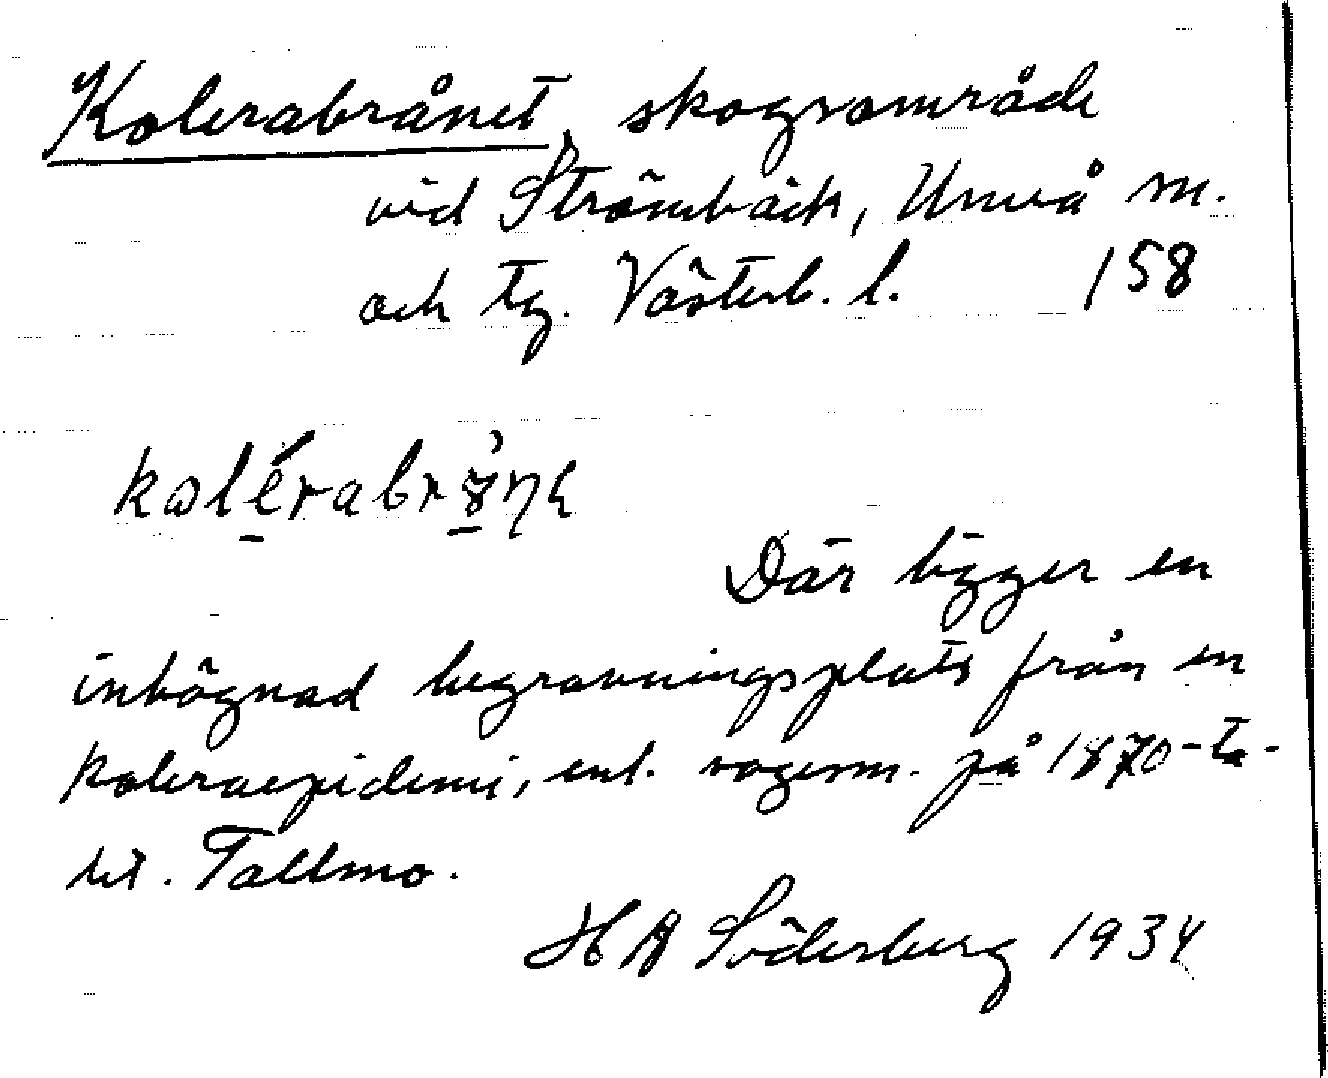 Kolerabrånet, skogsområde
vid Strömbäck, Umeå sn.
och tg. Västerb. l. 158
Där ligger en
inhägnad begravningsplats från en
koleraepidemi, enl. sagesm. på 1870-ta-
let. Tallmo.
H Söderberg 1934